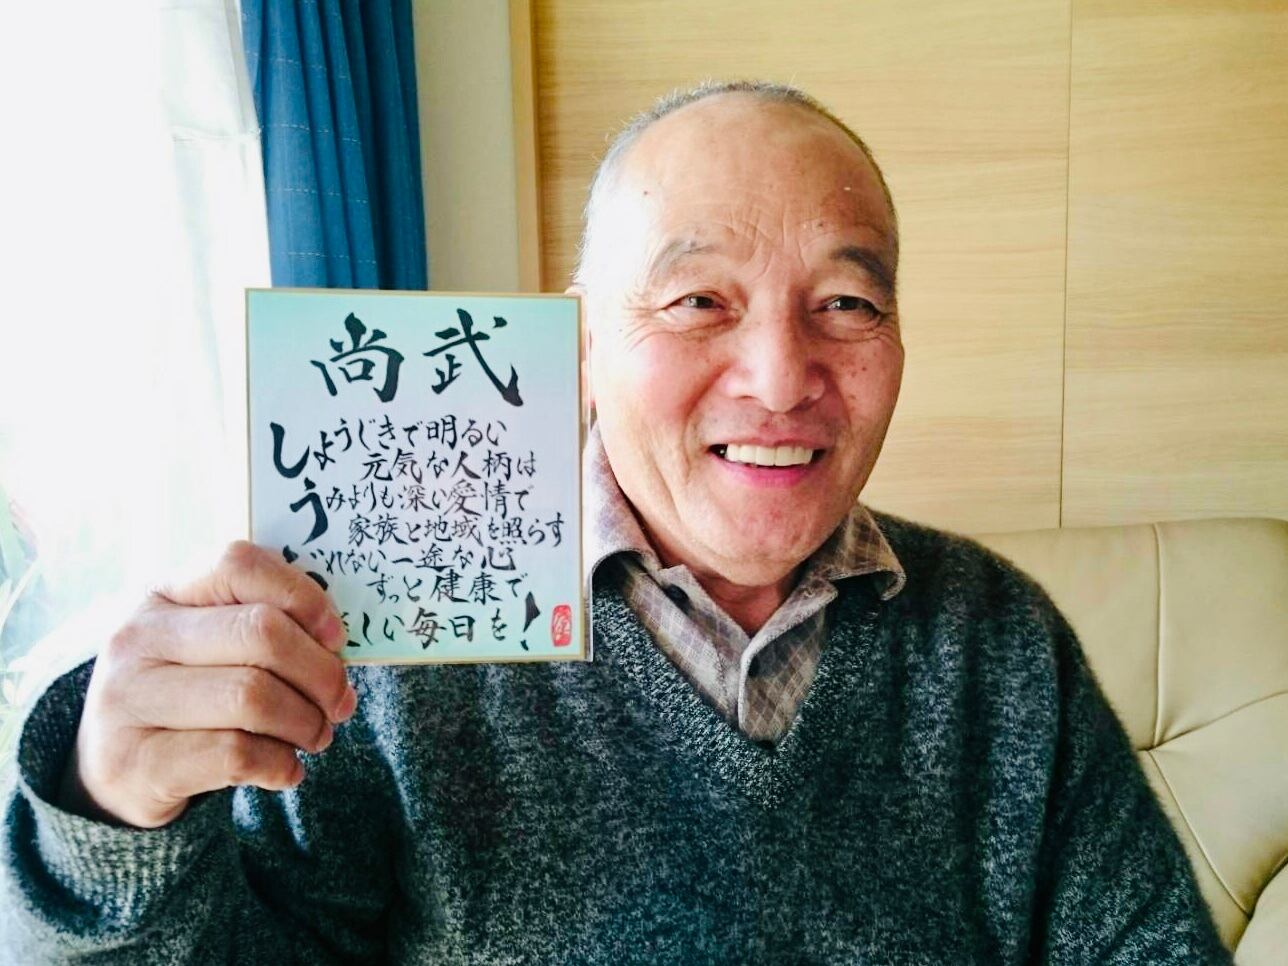 尚武
しょうじきで明るい
元気な人柄は
うみよりも深い愛情で
家族と地域を照らす
れない一途な心
ずっと健康で
しい毎日を！